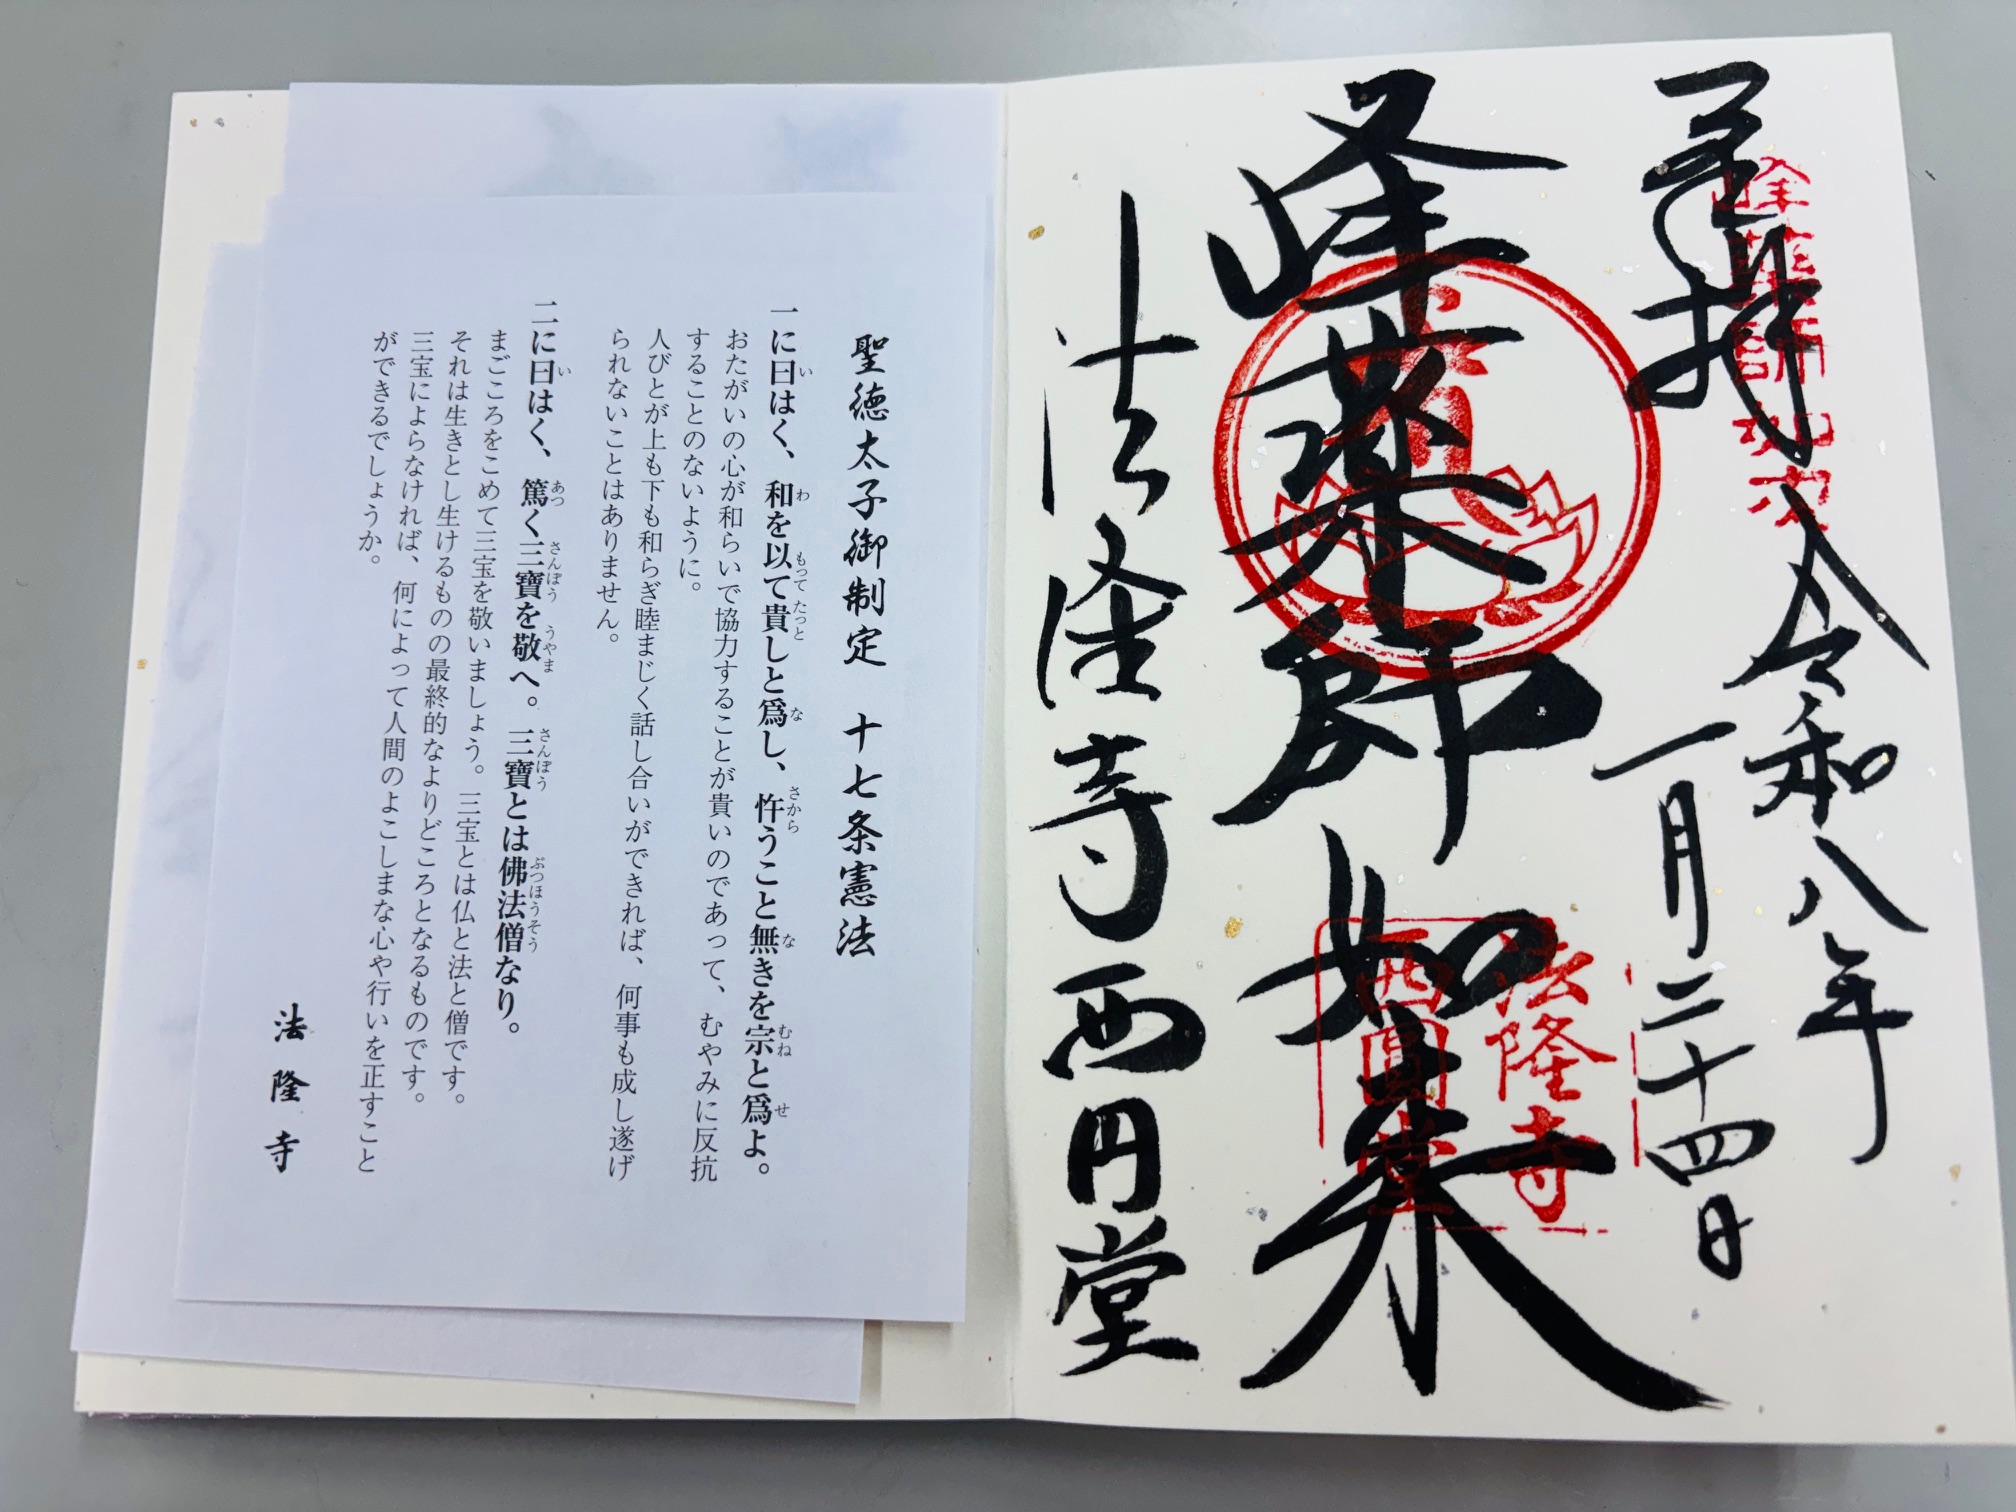 奉拝
令和八年
一月二十四日
峰薬師如来
法隆寺西円堂
峰薬師如来
法隆寺
西圓堂
聖徳太子御制定　十七条憲法
一に曰はく、和を以て貴しと爲し、忤うこと無きを宗と爲よ。
おたがいの心が和らいで協力することが貴いのであって、むやみに反抗
することのないように。
人びとが上も下も和らぎ睦まじく話し合いができれば、何事も成し遂げ
られないことはありません。
二に曰はく、篤く三寶を敬へ。三寶とは佛法僧なり。
まごころをこめて三宝を敬いましょう。三宝とは仏と法と僧です。
それは生きとし生けるものの最終的なよりどころとなるものです。
三宝によらなければ、何によって人間のよこしまな心や行いを正すこと
ができるでしょうか。
法隆寺